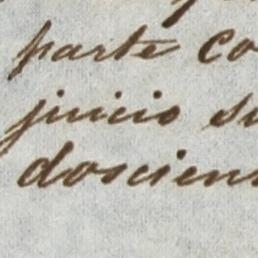 parte co
juicio su
doscien